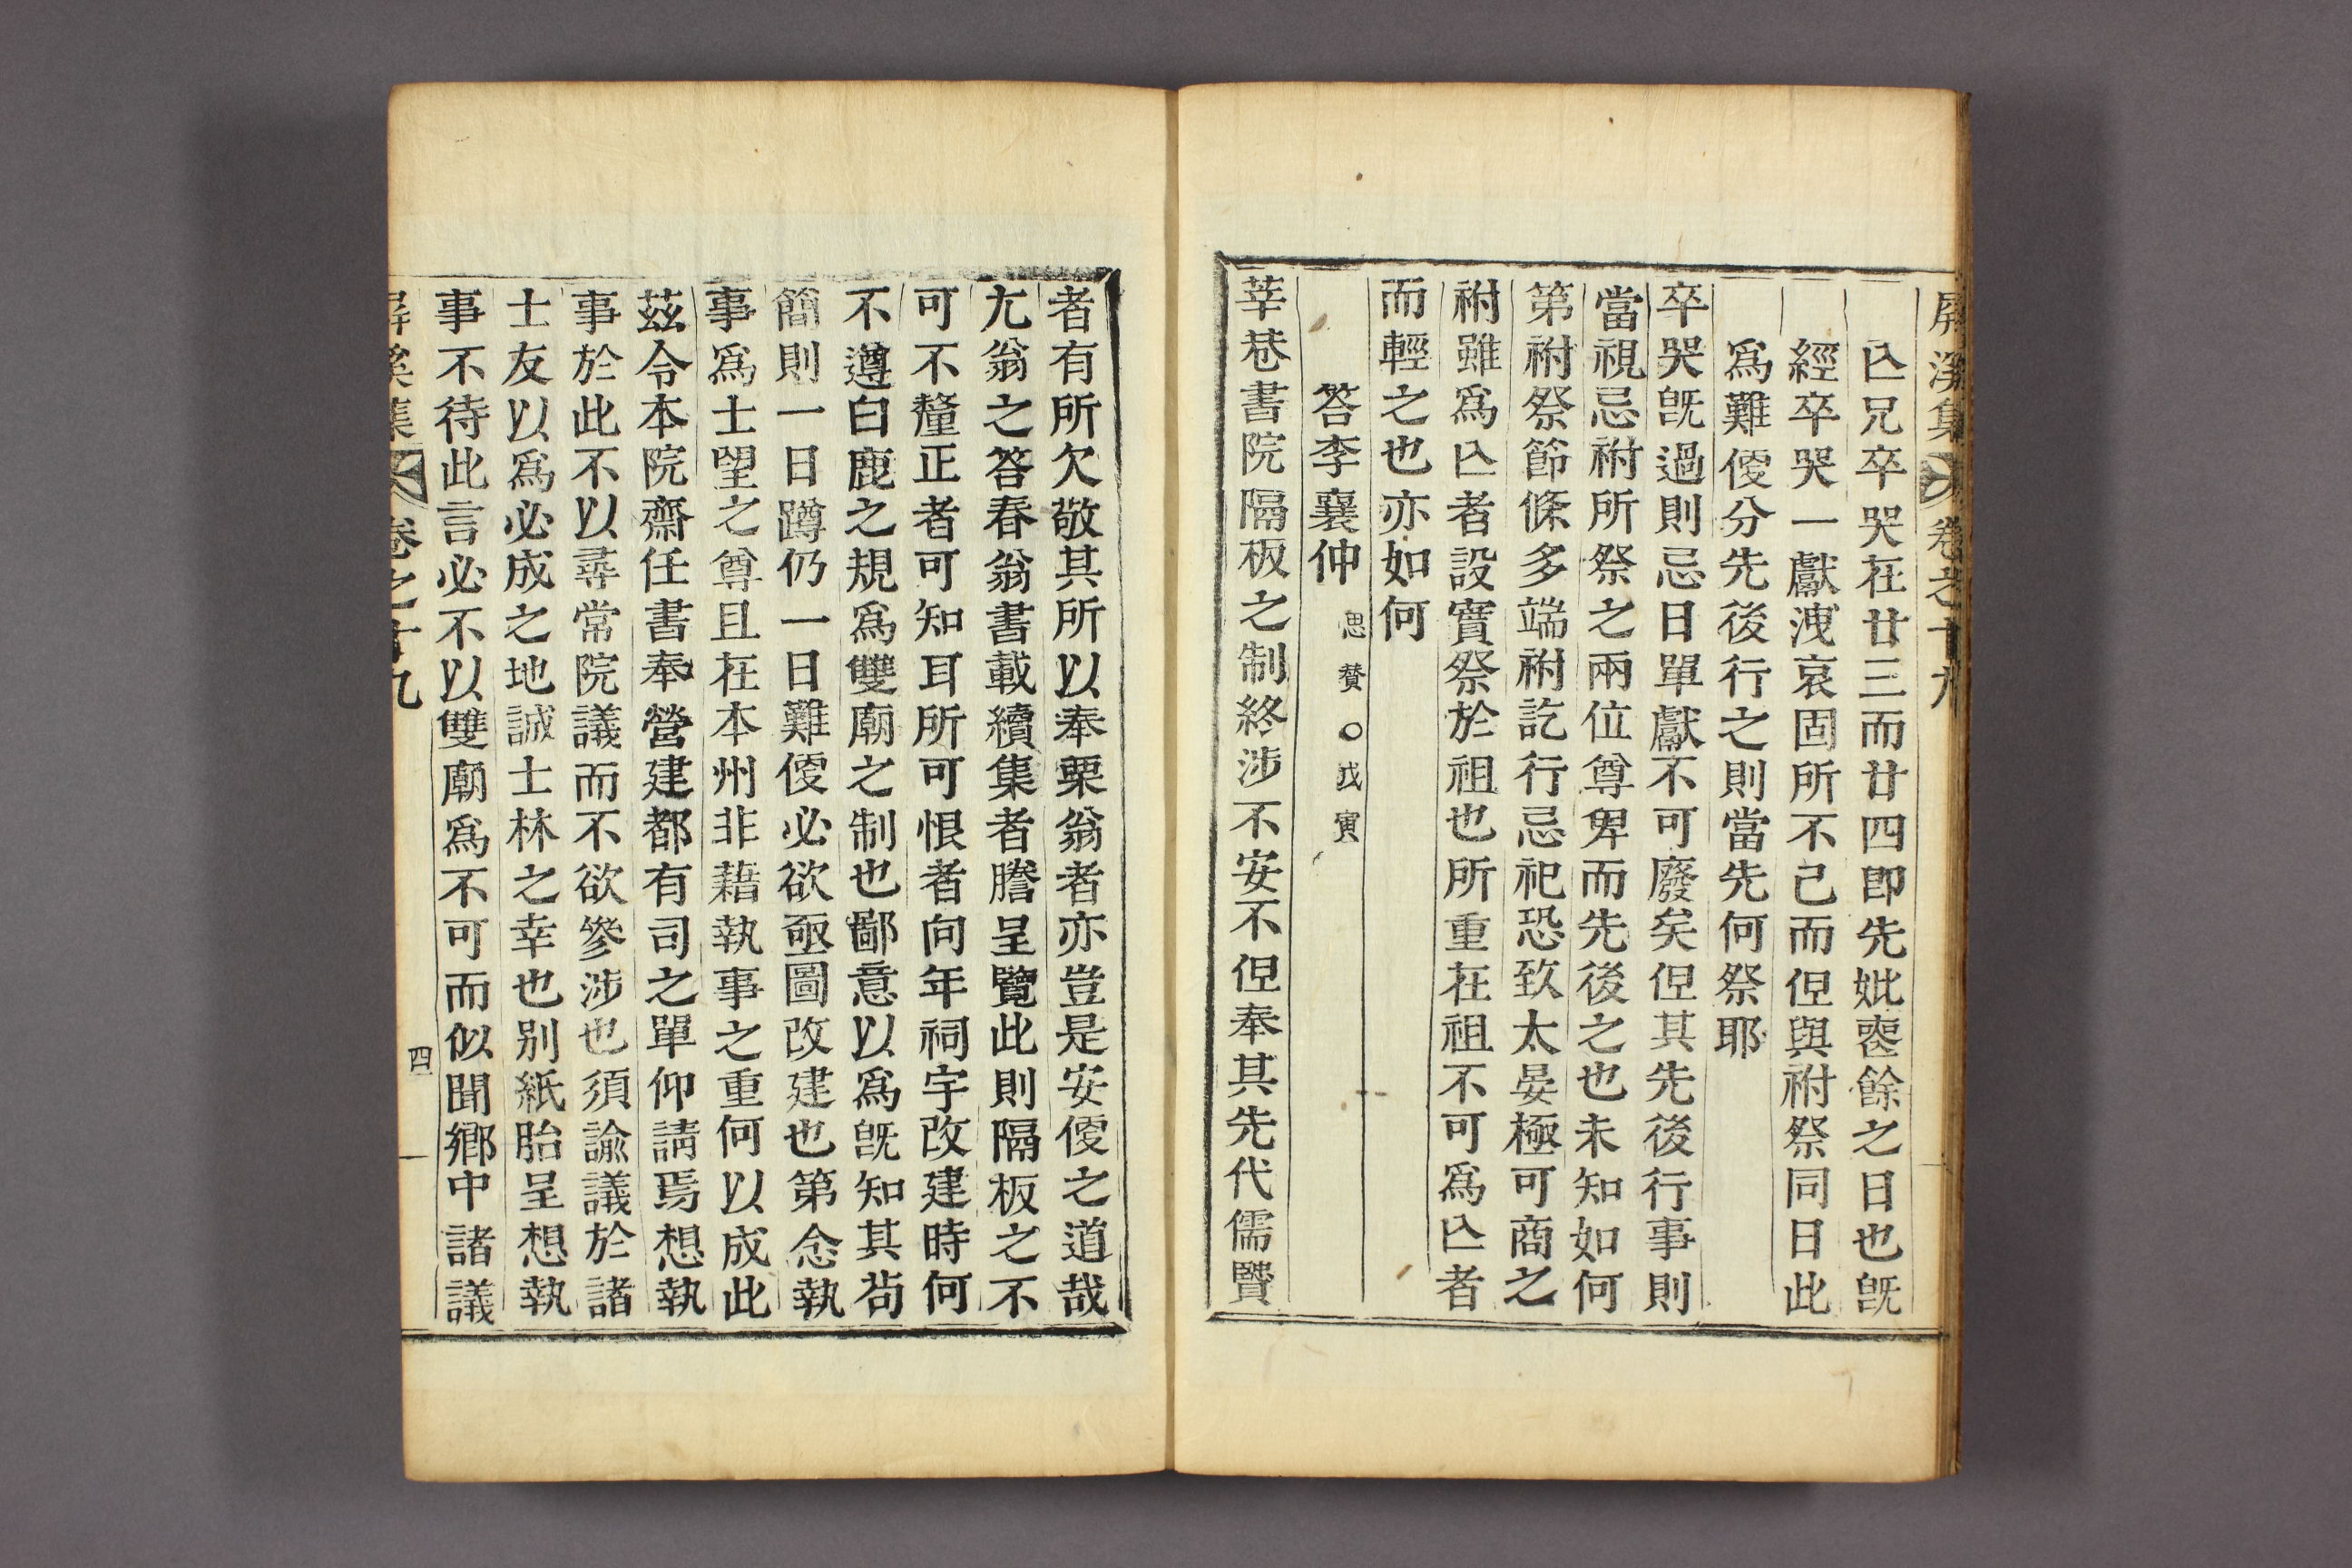 屛溪集 卷之十九
亾兄卒哭在廿三而廿四卽先妣喪餘之日也旣
經卒哭一獻洩哀固所不已而但與祔祭同日此
爲難便分先後行之則當先何祭耶
卒哭旣過則忌日單獻不可廢矣但其先後行事則
當視忌祔所祭之兩位尊卑而先後之也未知如何
第祔祭節條多端祔訖行忌祀恐致太晏極可商之
祔雖爲亾者設實祭於祖也所重在祖不可爲亾者
而輕之也亦如何
答李襄仲 思贊○戊寅
莘巷書院隔板之制終涉不安不但奉其先代儒賢
者有所欠敬其所以奉栗翁者亦豈是安便之道哉
尢翁之答春翁書載續集者謄呈覽此則隔板之不
可不釐正者可知耳所可恨者向年祠宇改建時何
不遵白鹿之規爲雙廟之制也鄙意以爲旣知其苟
簡則一日蹲仍一日難便必欲亟圖改建也第念執
事爲士望之尊且在本州非藉執事之重何以成此
玆令本院齋任書奉營建都有司之單仰請焉想執
事於此不以尋常院議而不欲參涉也須諭議於諸
士友以爲必成之地誠士林之幸也别紙胎呈想執
事不待此言必不以雙廟爲不可而似聞鄉中諸議
屛溪集 卷之十九 四